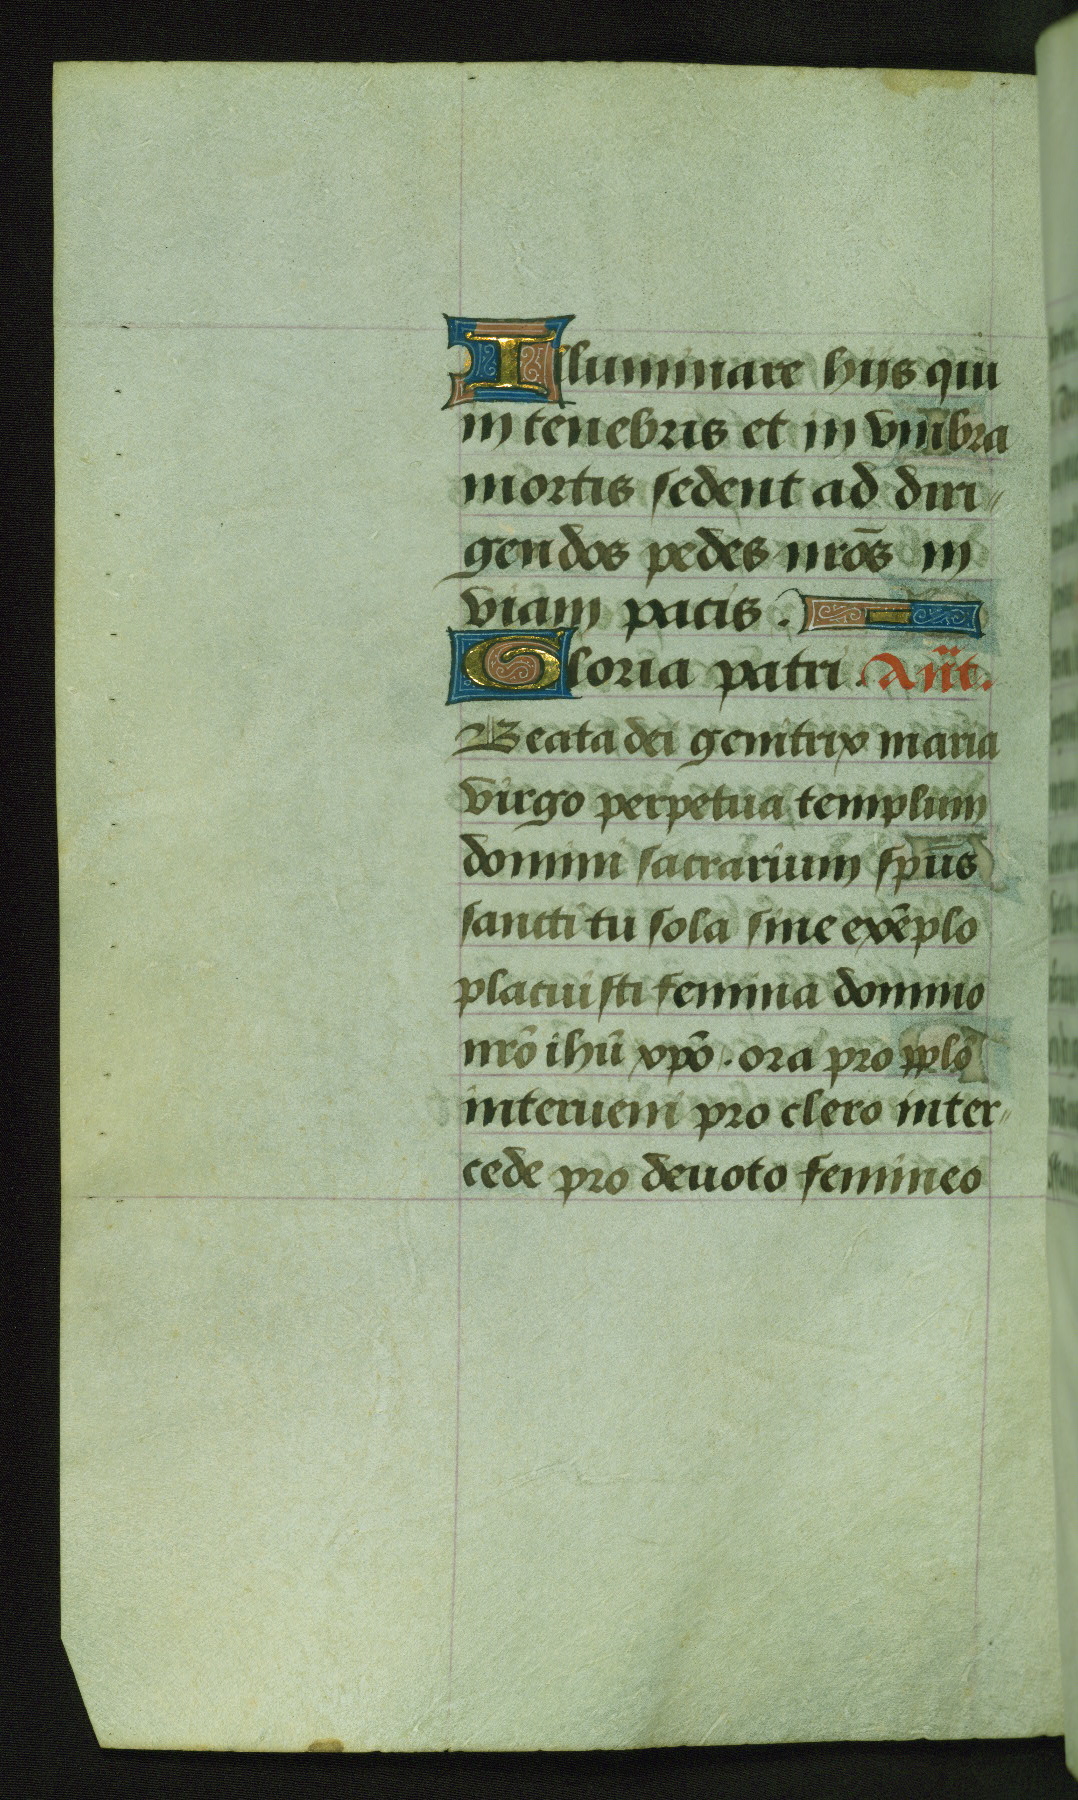 Illuminare hijs qui
in tenebris et in vmbra
mortis sedent ad diri-
gendos pedes nrōs in
viam pacis.
Gloria patri. Añt.
Beata dei genitrix maria
virgo perpetua templum
domini sacrarium spūs
sancti tu sola sine exēplo
placuisti femina domino
nrō ihū xpō. ora pro pplō
interueni pro clero inter-
cede pro deuoto femineo